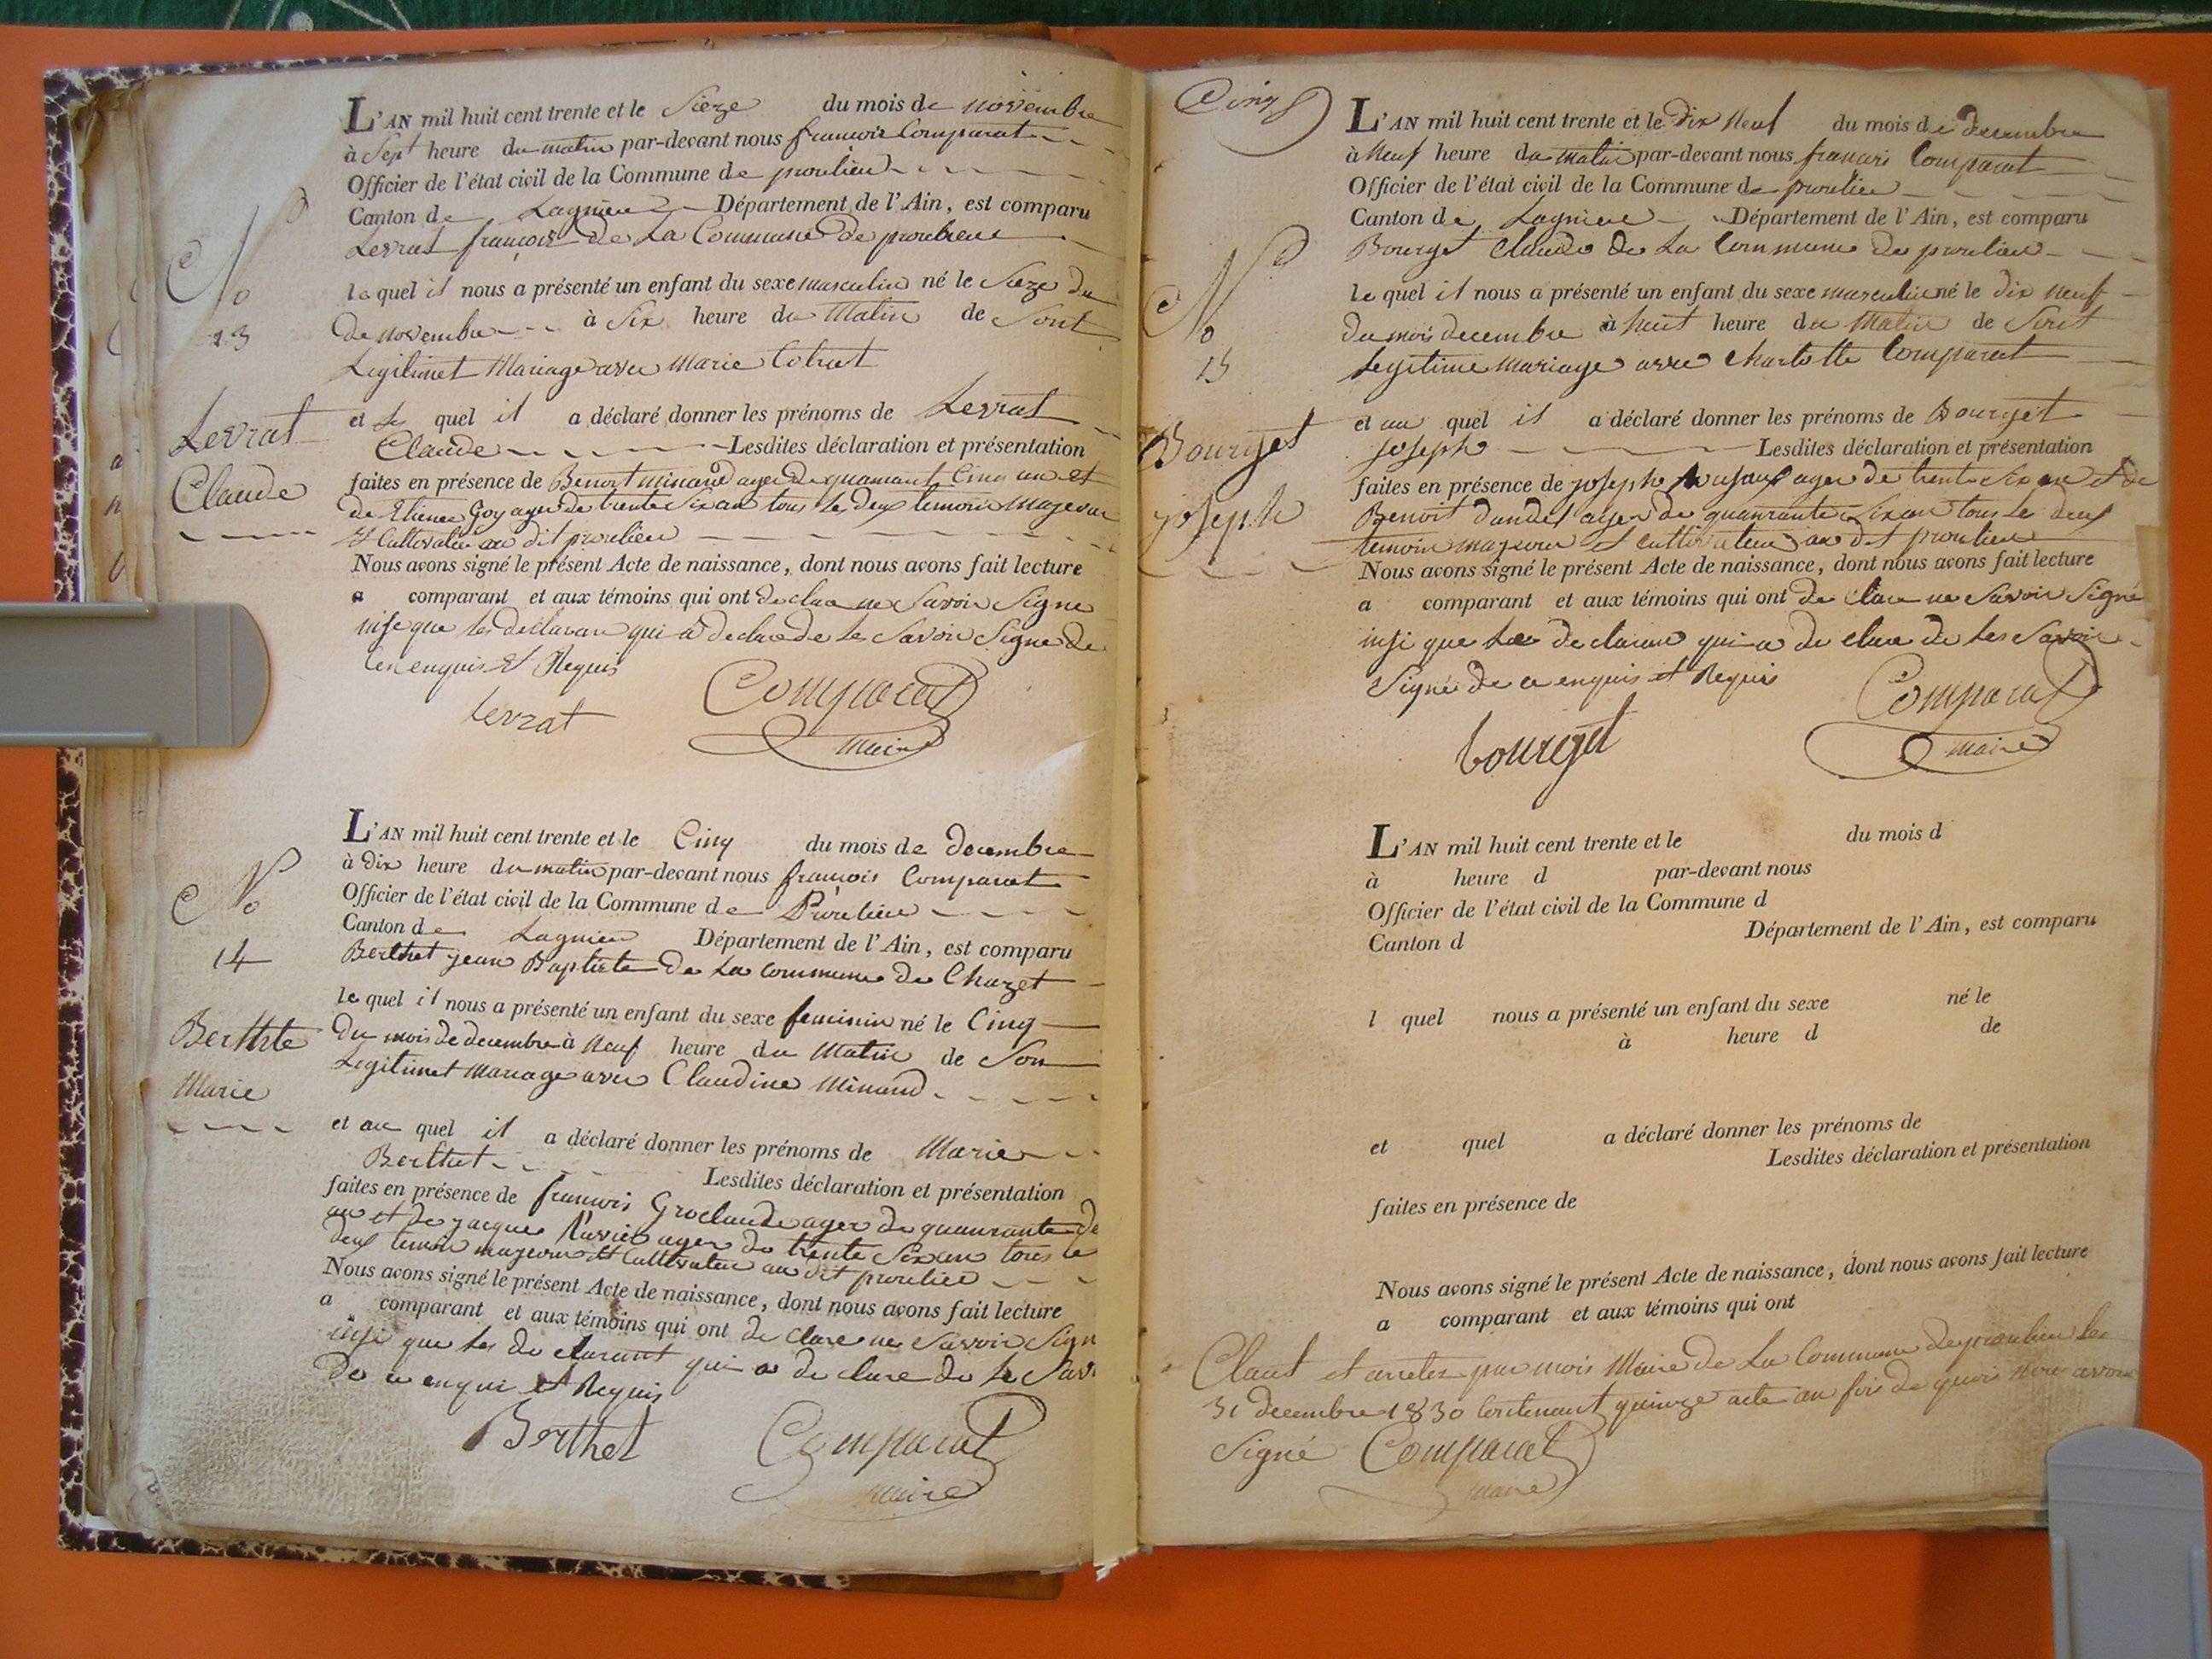 L'AN mil huit cent trente et le Sieze du mois de novembre
à Sept heure du matin par-devant nous francois Comparat
Officier de l'état civil de la Commune de proulieu
Canton de Lagnieu Département de l'Ain, est comparu
Levrat françois de La Commune de proulieu
le quel il nous a présenté un enfant du sexe masculin né le Sieze du
de novembre à Six heure du Matin de Sont
Legitimet Mariage avec Marie
et le quel il a déclaré donner les prénoms de Levrat
Claude Lesdites déclaration et présentation
faites en présence de Benoit minand ager de quarante Cinq an et
de Etienne Goy ager de trente Six an tous les deux temoin majeur
et Cultivateur au dit proulieu
Nous avons signé le présent Acte de naissance, dont nous avons fait lecture
a comparant et aux témoins qui ont declare ne Savoir Signe
insi que les declarant qui a declare de les Savoir Signe de
enquis et Requis
levrat Comparat
maire
No
13
Levrat
Claude
L'AN mil huit cent trente et le Cinq du mois de decembre
à dix heure du matin par-devant nous francois Comparat
Officier de l'état civil de la Commune de Proulieu
Canton de Lagnieu Département de l'Ain, est comparu
Berthet jean Baptiste de La commune de Chazet
le quel il nous a présenté un enfant du sexe feminin né le Cinq
Du mois de decembre à neuf heure du Matin de Son
Legitimet mariage avec Claudine Minand
et au quel il a déclaré donner les prénoms de Marie
Berthet Lesdites déclaration et présentation
faites en présence de francois Groclaude ager de quaurante de
an et de jacque ager de trente Six an tous le
deux temoin majeur et Cultivateur au dit proulieu
Nous avons signé le présent Acte de naissance, dont nous avons fait lecture
a comparant et aux témoins qui ont de clare ne Savoir Sign
insi que les de clarant qui a de clare de le Savi
De ce enqui et Requis
Berthet Comparat
maire
No
14
Berthte
Marie
Cinq
L'AN mil huit cent trente et le Dix Neuf du mois de decembre
à Neuf heure du Matin par-devant nous francois Comparat
Officier de l'état civil de la Commune de proulieu
Canton de Lagnieu Département de l'Ain, est comparu
Bourget Claude de La Commune de proulieu
le quel il nous a présenté un enfant du sexe masculin né le dix neuf
du mois decembre à huit heure du Matin de Sont
Legitime mariage avec Charlotte Comparat
et au quel il a déclaré donner les prénoms de Bourget
joseph Lesdites déclaration et présentation
faites en présence de joseph ager de trente Six an et de
Benoit dandel ager de quaurante Six an tous le deux
temoin majeur et cultivateur au dit proulieu
Nous avons signé le présent Acte de naissance, dont nous avons fait lecture
a comparant et aux témoins qui ont de clare ne Savoir Signé
insi que Le declarant qui a de clare de les Savoir
Signé de ce enquis et Requis
bourget Comparat
maire
No
15
Bourget
joseph
L'AN mil huit cent trente et le du mois d
à heure d par-devant nous
Officier de l'état civil de la Commune d
Canton d Département de l'Ain, est comparu
l quel nous a présenté un enfant du sexe né le
à heure d de
et quel a déclaré donner les prénoms de
Lesdites déclaration et présentation
faites en présence de
Nous avons signé le présent Acte de naissance, dont nous avons fait lecture
a comparant et aux témoins qui ont
Claut et arretez par mois Maire de La Commune de proulieu les
31 decembre 1830 Contenant quinze acte an fois de quois nous avons
Signé Comparat
maire